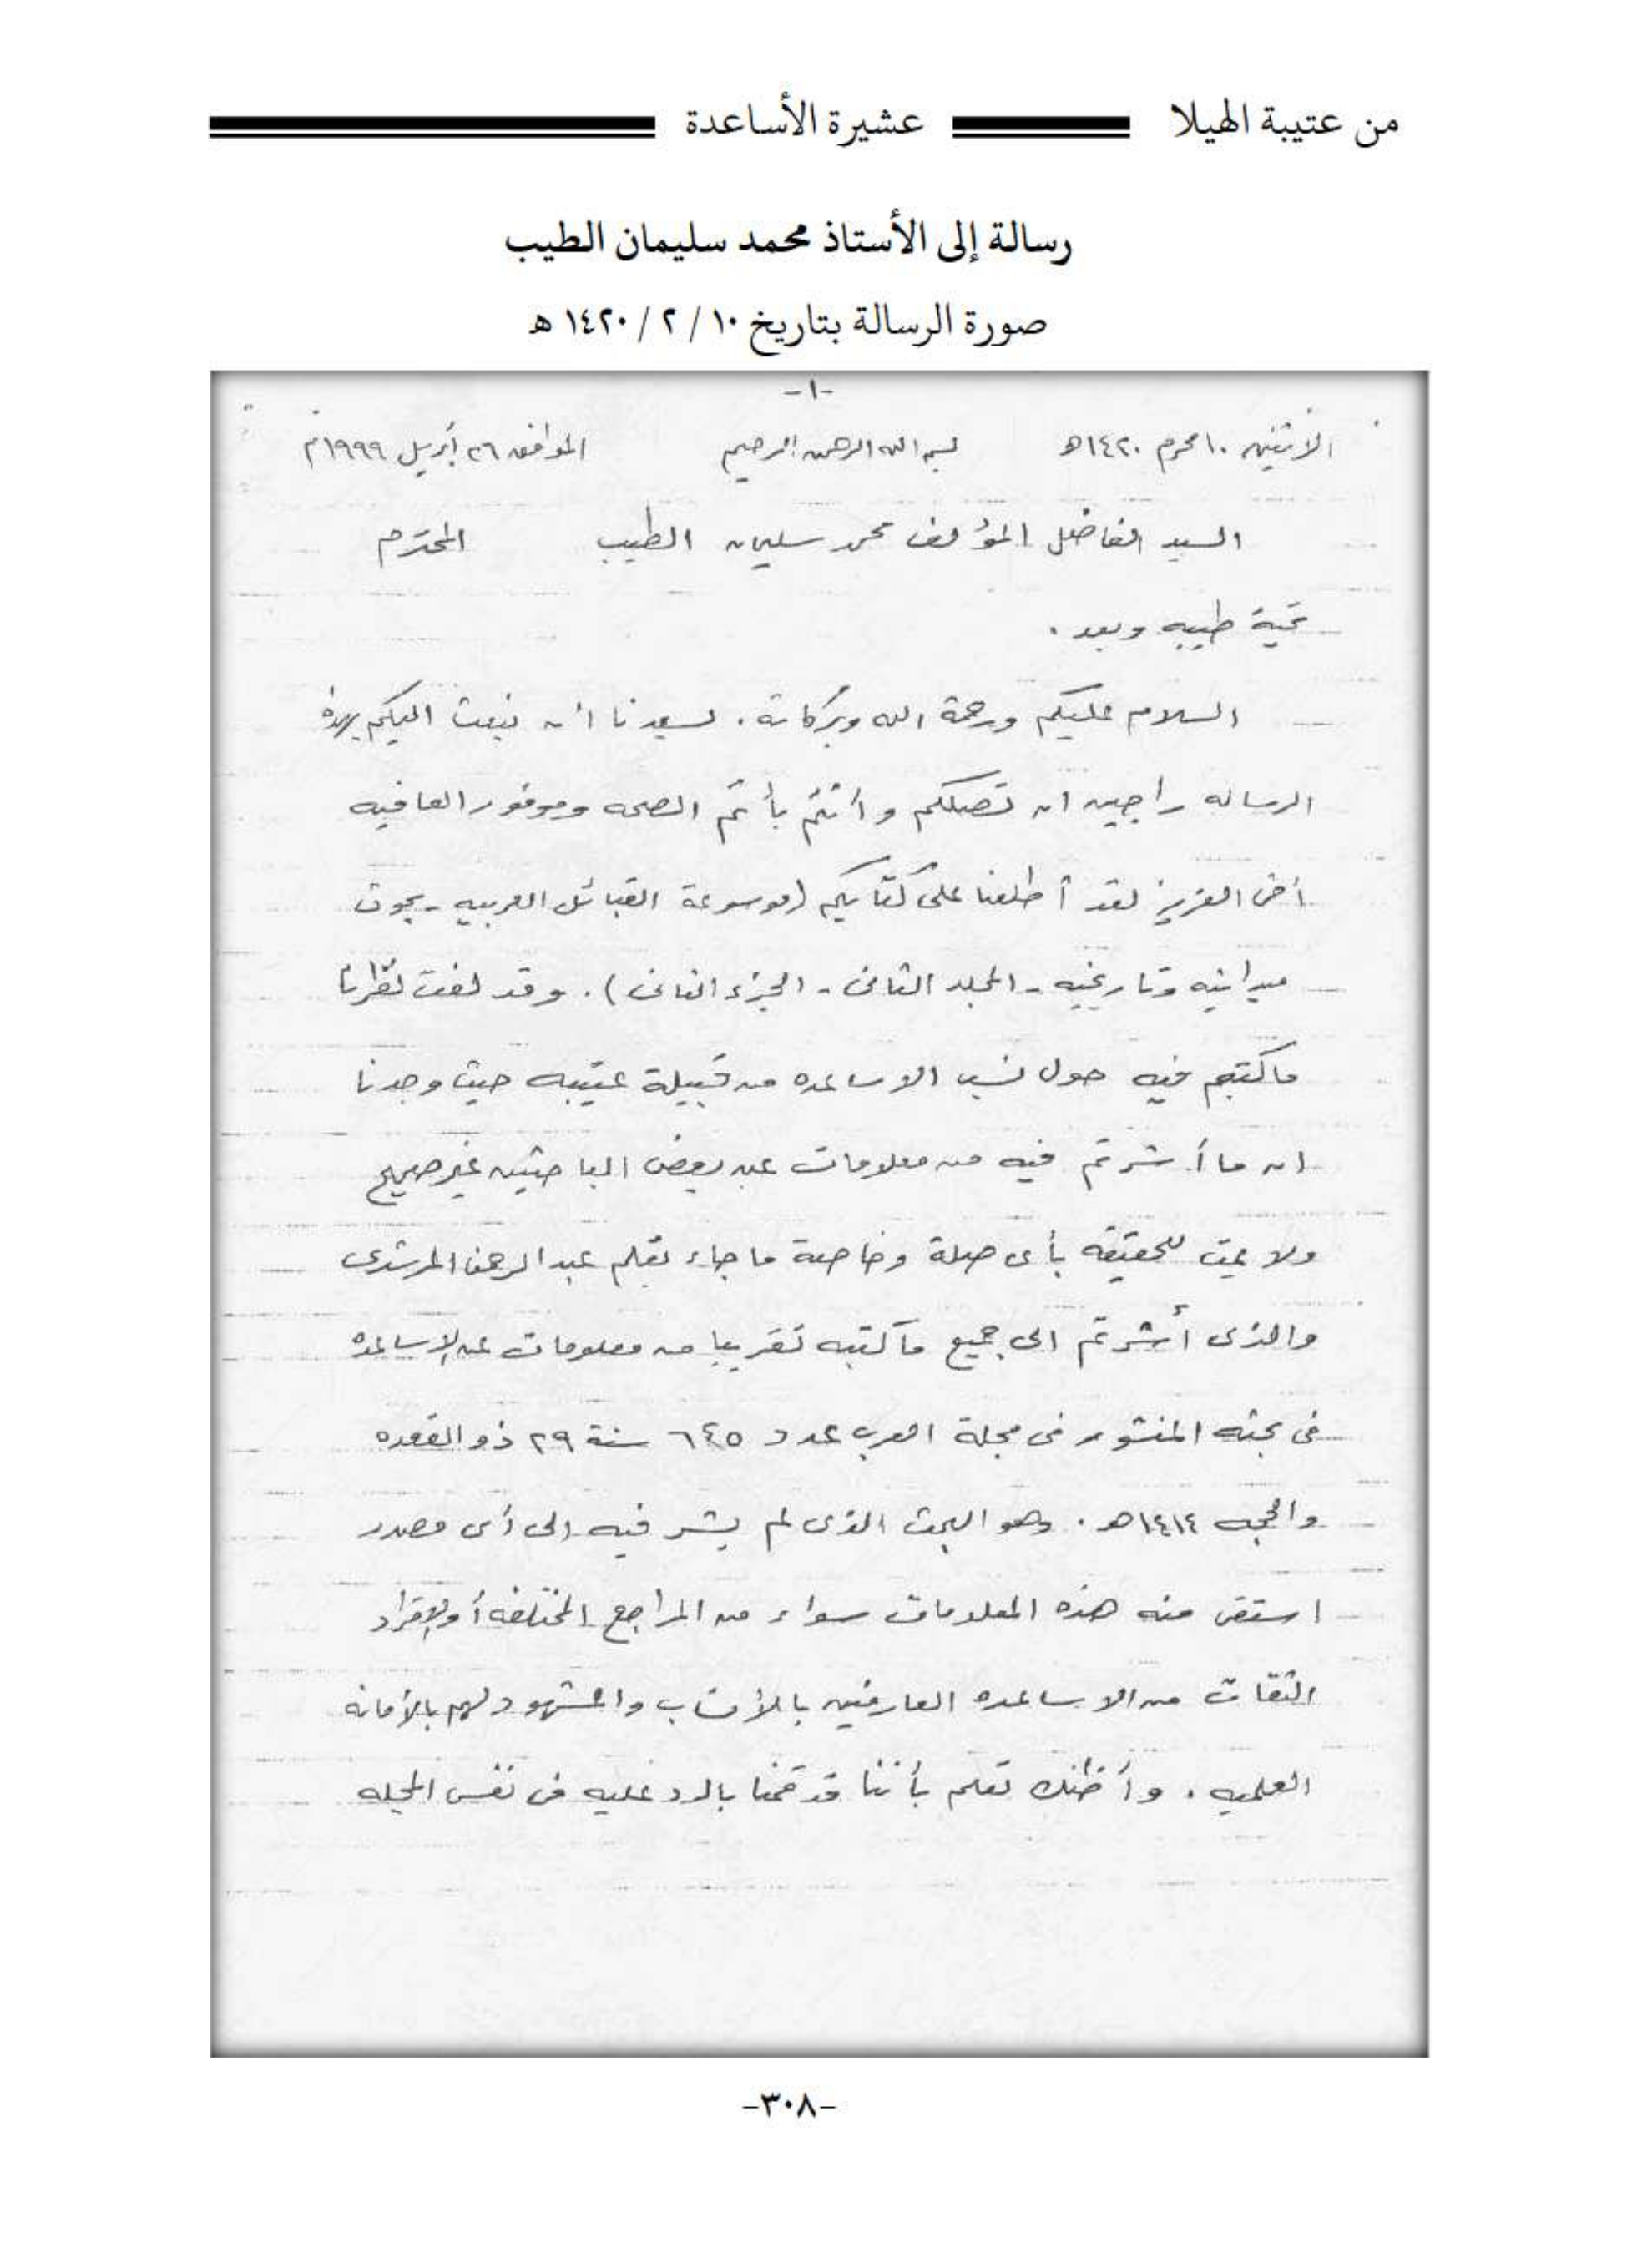 من عتيبة الهيلا عشيرة الأساعدة
رسالة إلى الأستاذ محمد سليمان الطيب
صورة الرسالة بتاريخ ١٠ / ٢ / ١٤٢٠ هـ
-١-
الاثنين ١٠ محرم ١٤٢٠هـ بسم الله الرحمن الرحيم الموافق ٢٦ أبريل ١٩٩٩م
السيد الفاضل المؤلف محمد سليمان الطيب المحترم
تحية طيبه وبعد .
السلام عليكم ورحمة الله وبركاته . يسعدنا أن نبعث اليكم بهذه
الرساله راجين ان تصلكم وأنتم بأتم الصحه وموفور العافيه
أخى العزيز لقد أطلعنا على كتابكم (موسوعة القبائل العربيه - بحوث
ميدانيه وتاريخيه - المجلد الثانى - الجزء الثانى) . وقد لفت نظرنا
ماكتبتم فيه حول نسب الاساعده من قبيلة عتيبه حيث وجدنا
ان ما أشرتم فيه من معلومات عن بعض الباحثين غير صحيح
ولا يمت للحقيقه بأى صلة وخاصة ما جاء بقلم عبدالرحمن المرشدى
والذى أشرتم الى جميع ماكتبه تقريبا من معلومات عن الاساعده
فى بحثه المنشور فى مجلة العرب عدد ٥،٦ سنة ٢٩ ذو القعده
والحجه ١٤١٤هـ . وهو البحث الذى لم يشر فيه إلى أى مصدر
استقى منه هذه المعلومات سواء من المراجع المختلفه أو الافراد
الثقات من الاساعده العارفين بالأنساب والمشهود لهم بالأمانه
العلميه . وأظنك تعلم بأننا قد قمنا بالرد عليه فى نفس المجله
-٣٠٨-